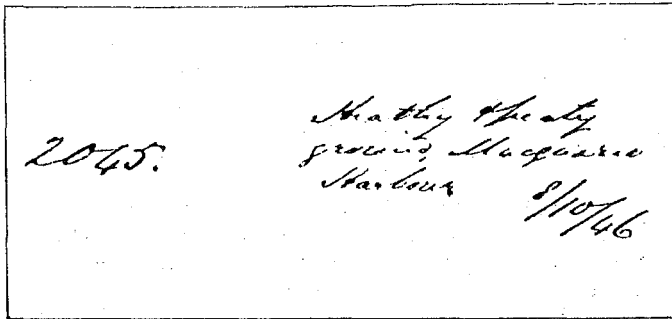 2045.
Heathy & peaty
ground, Macquarie
Harbour
8/10/46